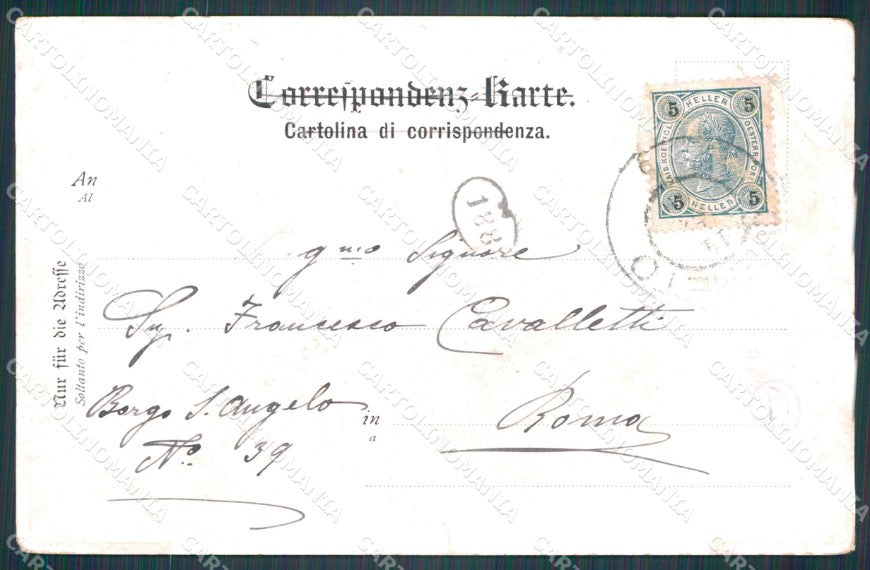 Correspondenz-Karte.
Cartolina di corrispondenza.
5 HELLER 5
5 HELLER 5
An
Al
128
gmo Signore
Sig. Francesco Cavalletti
Borgo S. Angelo
in
a
Roma
No. 39
Nur für die Adresse
Soltanto per l'indirizzo
CARTOLINOMANIA